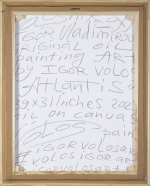 IGOR Vladimir
ORIGINAL oil
painting ART
BY IGOR VOLOS
"Atlantis"
39x31inches 202
oil on canvas
VOLOS pain
IGORVOLOSAR
VOLOS IGOR AR